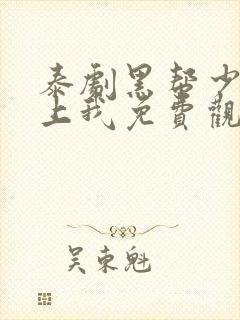 泰劇黑幫少
上我免費觀
吴東魁